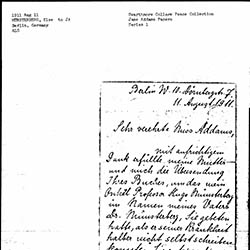 1911 Aug 11
MÜNSTERBERG, Else to JA
Berlin, Germany
ALS
Swarthmore College Peace Collection
Jane Addams Papers
Series 1
Berlin W. 10. Dörnbergstr. 7.
11. August 1911.
Sehr verehrte Miss Addams,
mit aufrichtigem
Dank erfüllte meine Mutter
und mich die Übersendung
Ihres Buches, um das mein
Onkel Professor Hugo Münsterberg
im Namen meines Vaters
Dr. Münsterberg, Sie gebeten
hatte, als er seiner Krankheit
halber nicht selbst schreiben